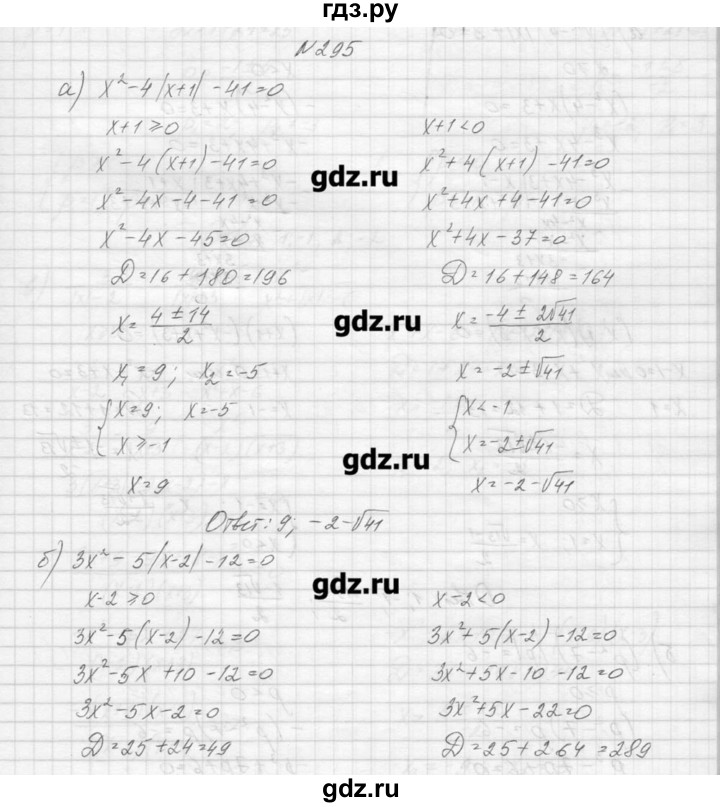 гдз.ру
N295
а) x² - 4|x+1| - 41=0
x+1≥0
x² - 4(x+1) - 41=0
x² - 4x - 4 - 41=0
x² - 4x - 45=0
D=16+180=196
x= (4 ± 14)/2
x₁=9; x₂=-5
{x=9; x=-5
x≥-1
x=9
x+1<0
x²+4(x+1) - 41=0
x²+4x+4-41=0
x²+4x-37=0
D=16+148=164
x= (-4 ± 2√41)/2
x=-2±√41
{x<-1
x=-2±√41
x=-2-√41
gdz.ru
gdz.ru
gdz.ru
Ответ: 9; -2-√41
б) 3x² - 5|x-2| - 12=0
x-2≥0
3x²-5(x-2)-12=0
3x²-5x+10-12=0
3x²-5x-2=0
D=25+24=49
x-2<0
3x²+5(x-2)-12=0
3x²+5x-10-12=0
3x²+5x-22=0
D=25+264=289
gdz.ru
gdz.ru